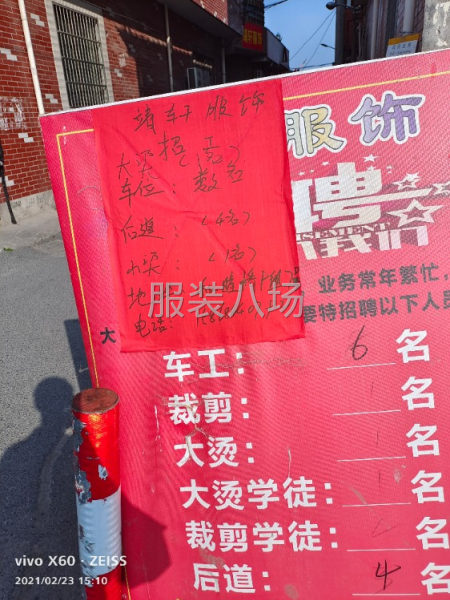 靖轩服饰
招
大烫（1名）
车位：数名
后道：（4名）
小烫：（1名）
地
电话：
服饰
聘
业务常年繁忙，
要特招聘以下人员
大
车工：6名
裁剪：名
大烫：1名
大烫学徒：1名
裁剪学徒：名
后道：4名
服装八场
vivo X60 · ZEISS
2021/02/23 15:10